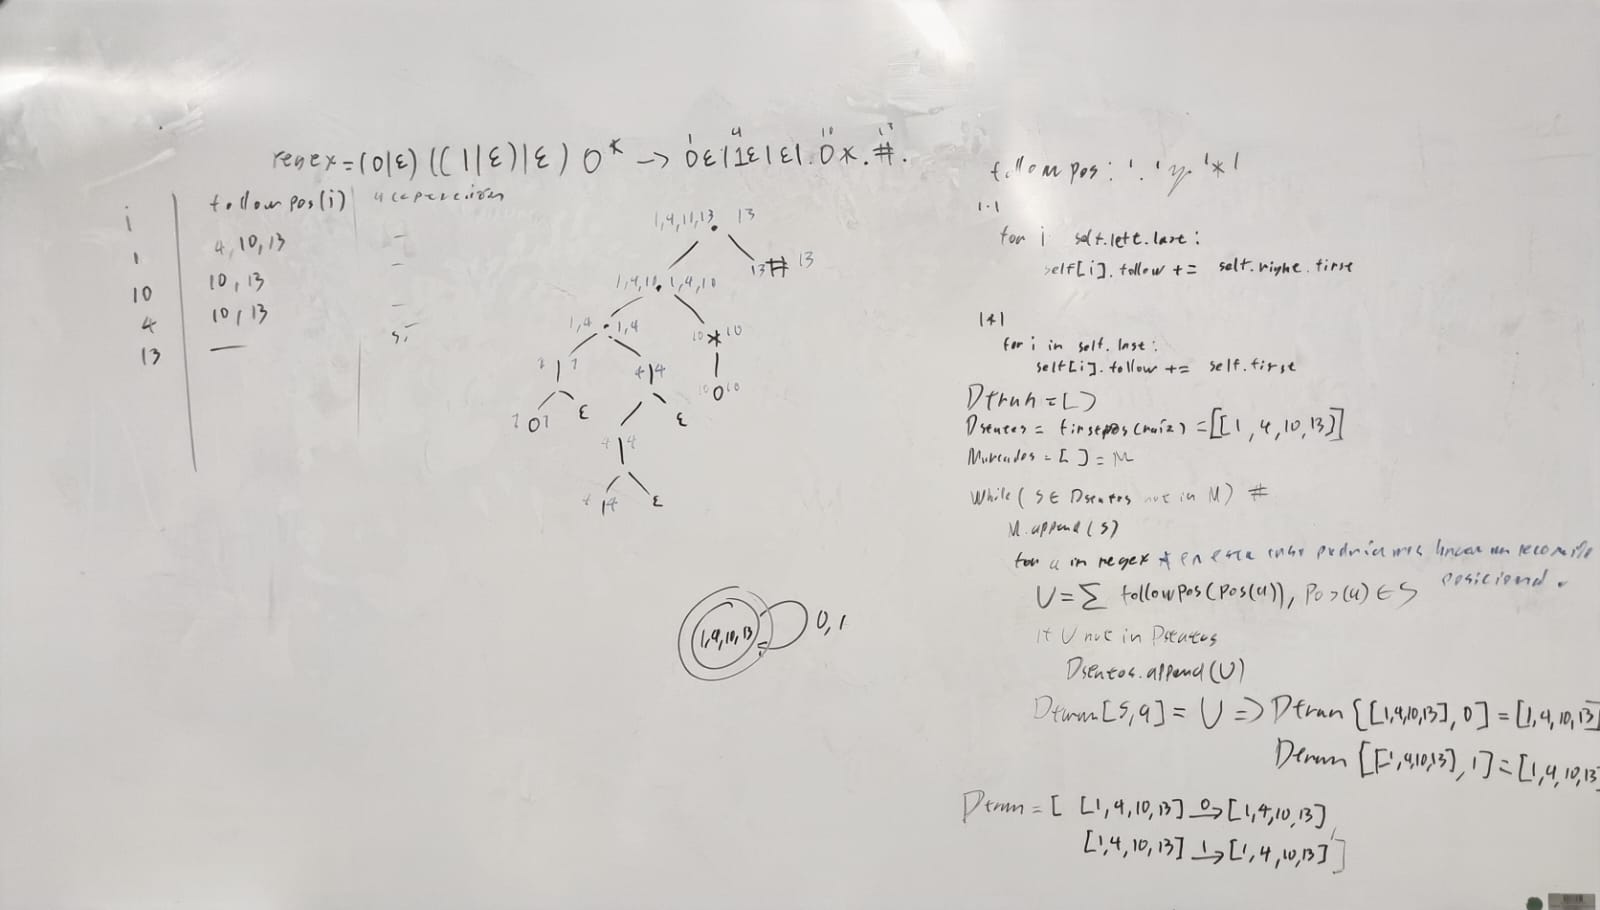 regex = (0|ε) ((1|ε)|ε) 0* → 0ε|1ε|ε|.0*.#.
1 4 10 13
i followpos(i) aceptación
1 4,10,13 –
10 10,13 –
4 10,13 –
13 — si
1,4,11,13 . 13
13 # 13
1,4,10 . 1,4,10
1,4 . 1,4
10 * 10
1 | 1
4 | 4
10 0 10
1 0 1 ε
ε
4 | 4
4 1 4 ε
1,4,10,13
0,1
followpos: '.' y '*'
|.|
for i self.left.last:
self[i].follow += self.right.first
|*|
for i in self.last:
self[i].follow += self.first
Dtran = [ ]
Dsentos = firstpos(raíz) = [[1,4,10,13]]
Marcados = [ ] = M
While ( S ∈ Dsentos not in M) #
M.append(S)
for a in regex * en este caso podría ser hacer un recorrido
posicional.
U = Σ followpos(pos(a)), Pos(a) ∈ S
if U not in Dsentos
Dsentos.append(U)
Dtran[S,a] = U => Dtran [[1,4,10,13], 0] = [1,4,10,13]
Dtran [[1,4,10,13], 1] = [1,4,10,13
Dtran = [ [1,4,10,13] 0→ [1,4,10,13],
[1,4,10,13] 1→ [1,4,10,13] ]